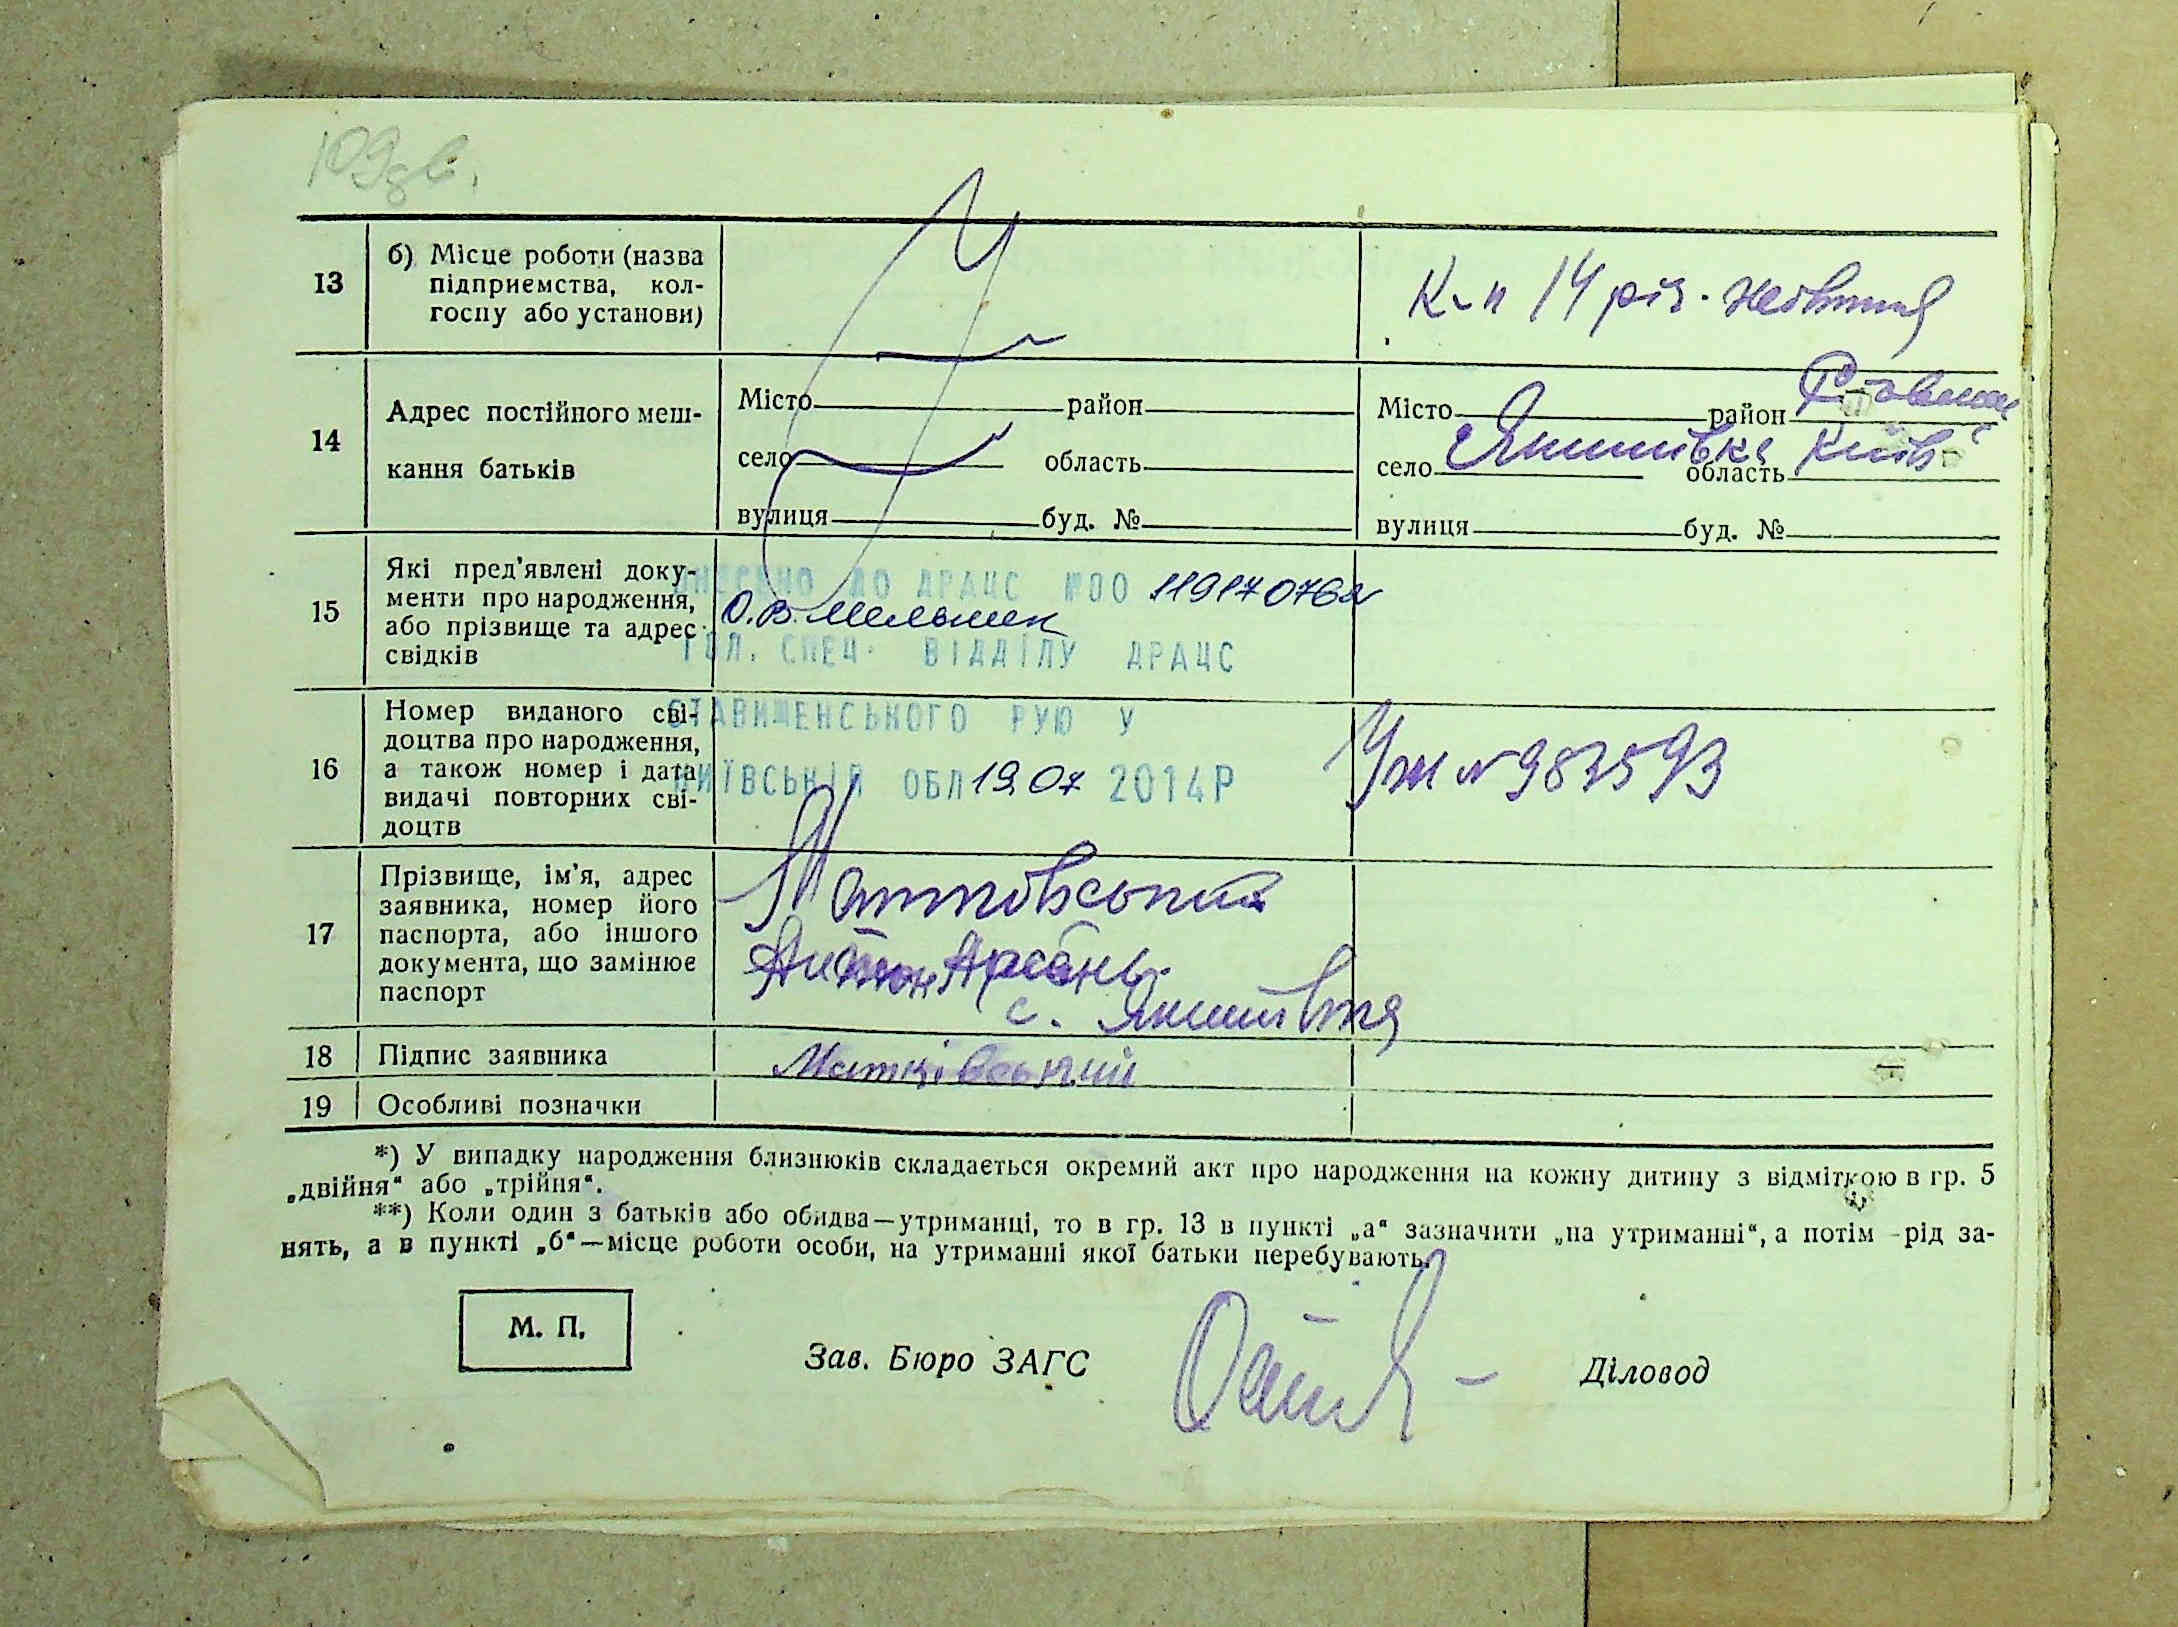 109зв.
13
б) Місце роботи (назва
підприємства, кол-
госпу або установи)
К-п 14 річ. Жовтня
14
Адрес постійного меш-
кання батьків
Місто район
село область
вулиця буд. №
Місто район Ставищ
село Якимівка область Київ
вулиця буд. №
15
Які пред'явлені доку-
менти про народження,
або прізвище та адрес
свідків
ВНЕСЕНО ДО ДРАЦС №00 119170762
О.В. Мельник
ГОЛ. СПЕЦ. ВІДДІЛУ ДРАЦС
16
Номер виданого сві-
доцтва про народження,
а також номер і дата
видачі повторних сві-
доцтв
СТАВИЩЕНСЬКОГО РУЮ У
КИЇВСЬКІЙ ОБЛ 19.07 2014Р
УЖ № 983593
17
Прізвище, ім'я, адрес
заявника, номер його
паспорта, або іншого
документа, що замінює
паспорт
Антон Арсень.
с. Якимівка
18
Підпис заявника
Матківський
19
Особливі позначки
*) У випадку народження близнюків складається окремий акт про народження на кожну дитину з відміткою в гр. 5
„двійня“ або „трійня“.
**) Коли один з батьків або обидва—утриманці, то в гр. 13 в пункті „а“ зазначити „на утриманні“, а потім -рід за-
нять, а в пункті „б“—місце роботи особи, на утриманні якої батьки перебувають.
М. П.
Зав. Бюро ЗАГС
Діловод